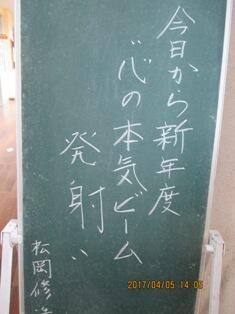 今日から新年度
"心の本気ビーム
発射"
松岡修造
2017/04/05 14:05